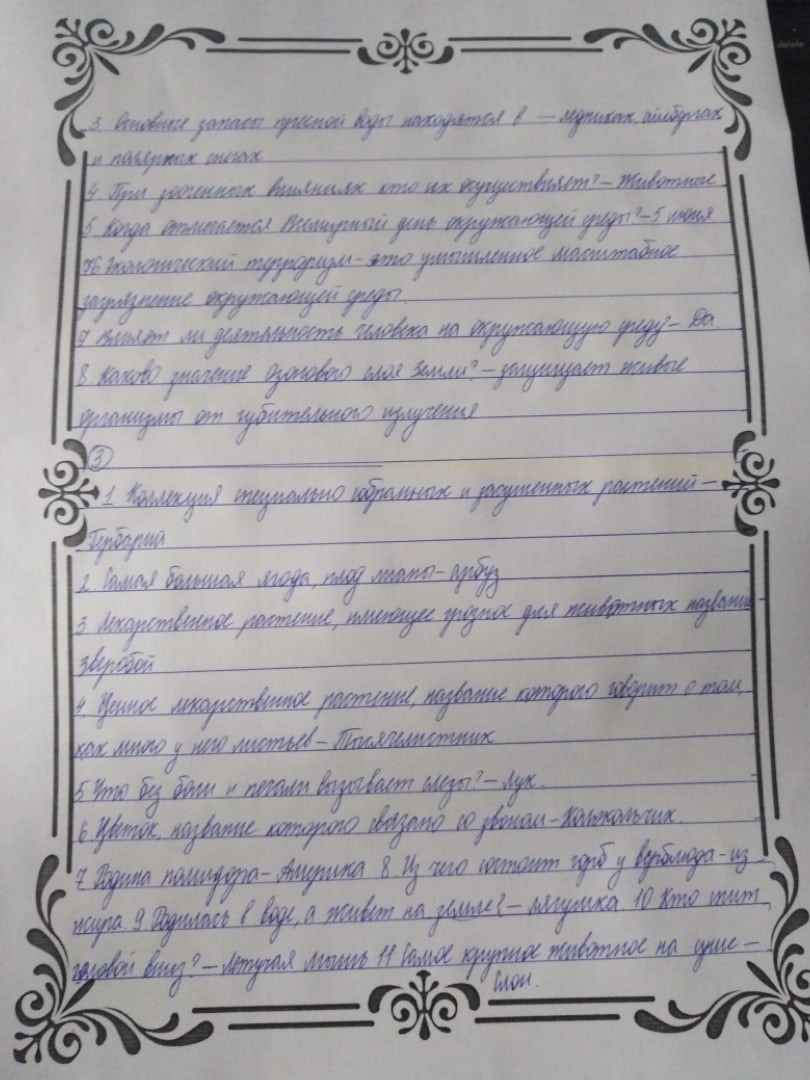 3. Основные запасы пресной воды находятся в — ледниках, айсбергах
и полярных снегах
4 При зоогенных влияниях кто их осуществляет? – Животные
5 Когда отмечается Всемирный день окружающей среды? – 5 июня
6 Экологический терроризм – это умышленное масштабное
загрязнение окружающей среды.
7 Влияет ли деятельность человека на окружающую среду? – Да.
8. Каково значение озонового слоя Земли? – защищает живые
организмы от губительного излучения
3
1 Коллекция специально собранных и засушенных растений –
Гербарий
2 Самая большая ягода, плод лианы – арбуз
3 Лекарственное растение, имеющее грозное для животных название –
зверобой
4. Ценное лекарственное растение, название которого говорит о том,
как много у него листьев – Тысячелистник
5. Что без боли и печали вызывает слезы? – Лук.
6. Цветок, название которого связано со звоном – Колокольчик.
7 Родина помидора – Америка 8 Из чего состоит горб у верблюда – из
жира. 9 Родилась в воде, а живет на земле? – лягушка 10 Кто спит
головой вниз? – Летучая мышь 11 Самое крупное животное на суше –
Слон.
delete